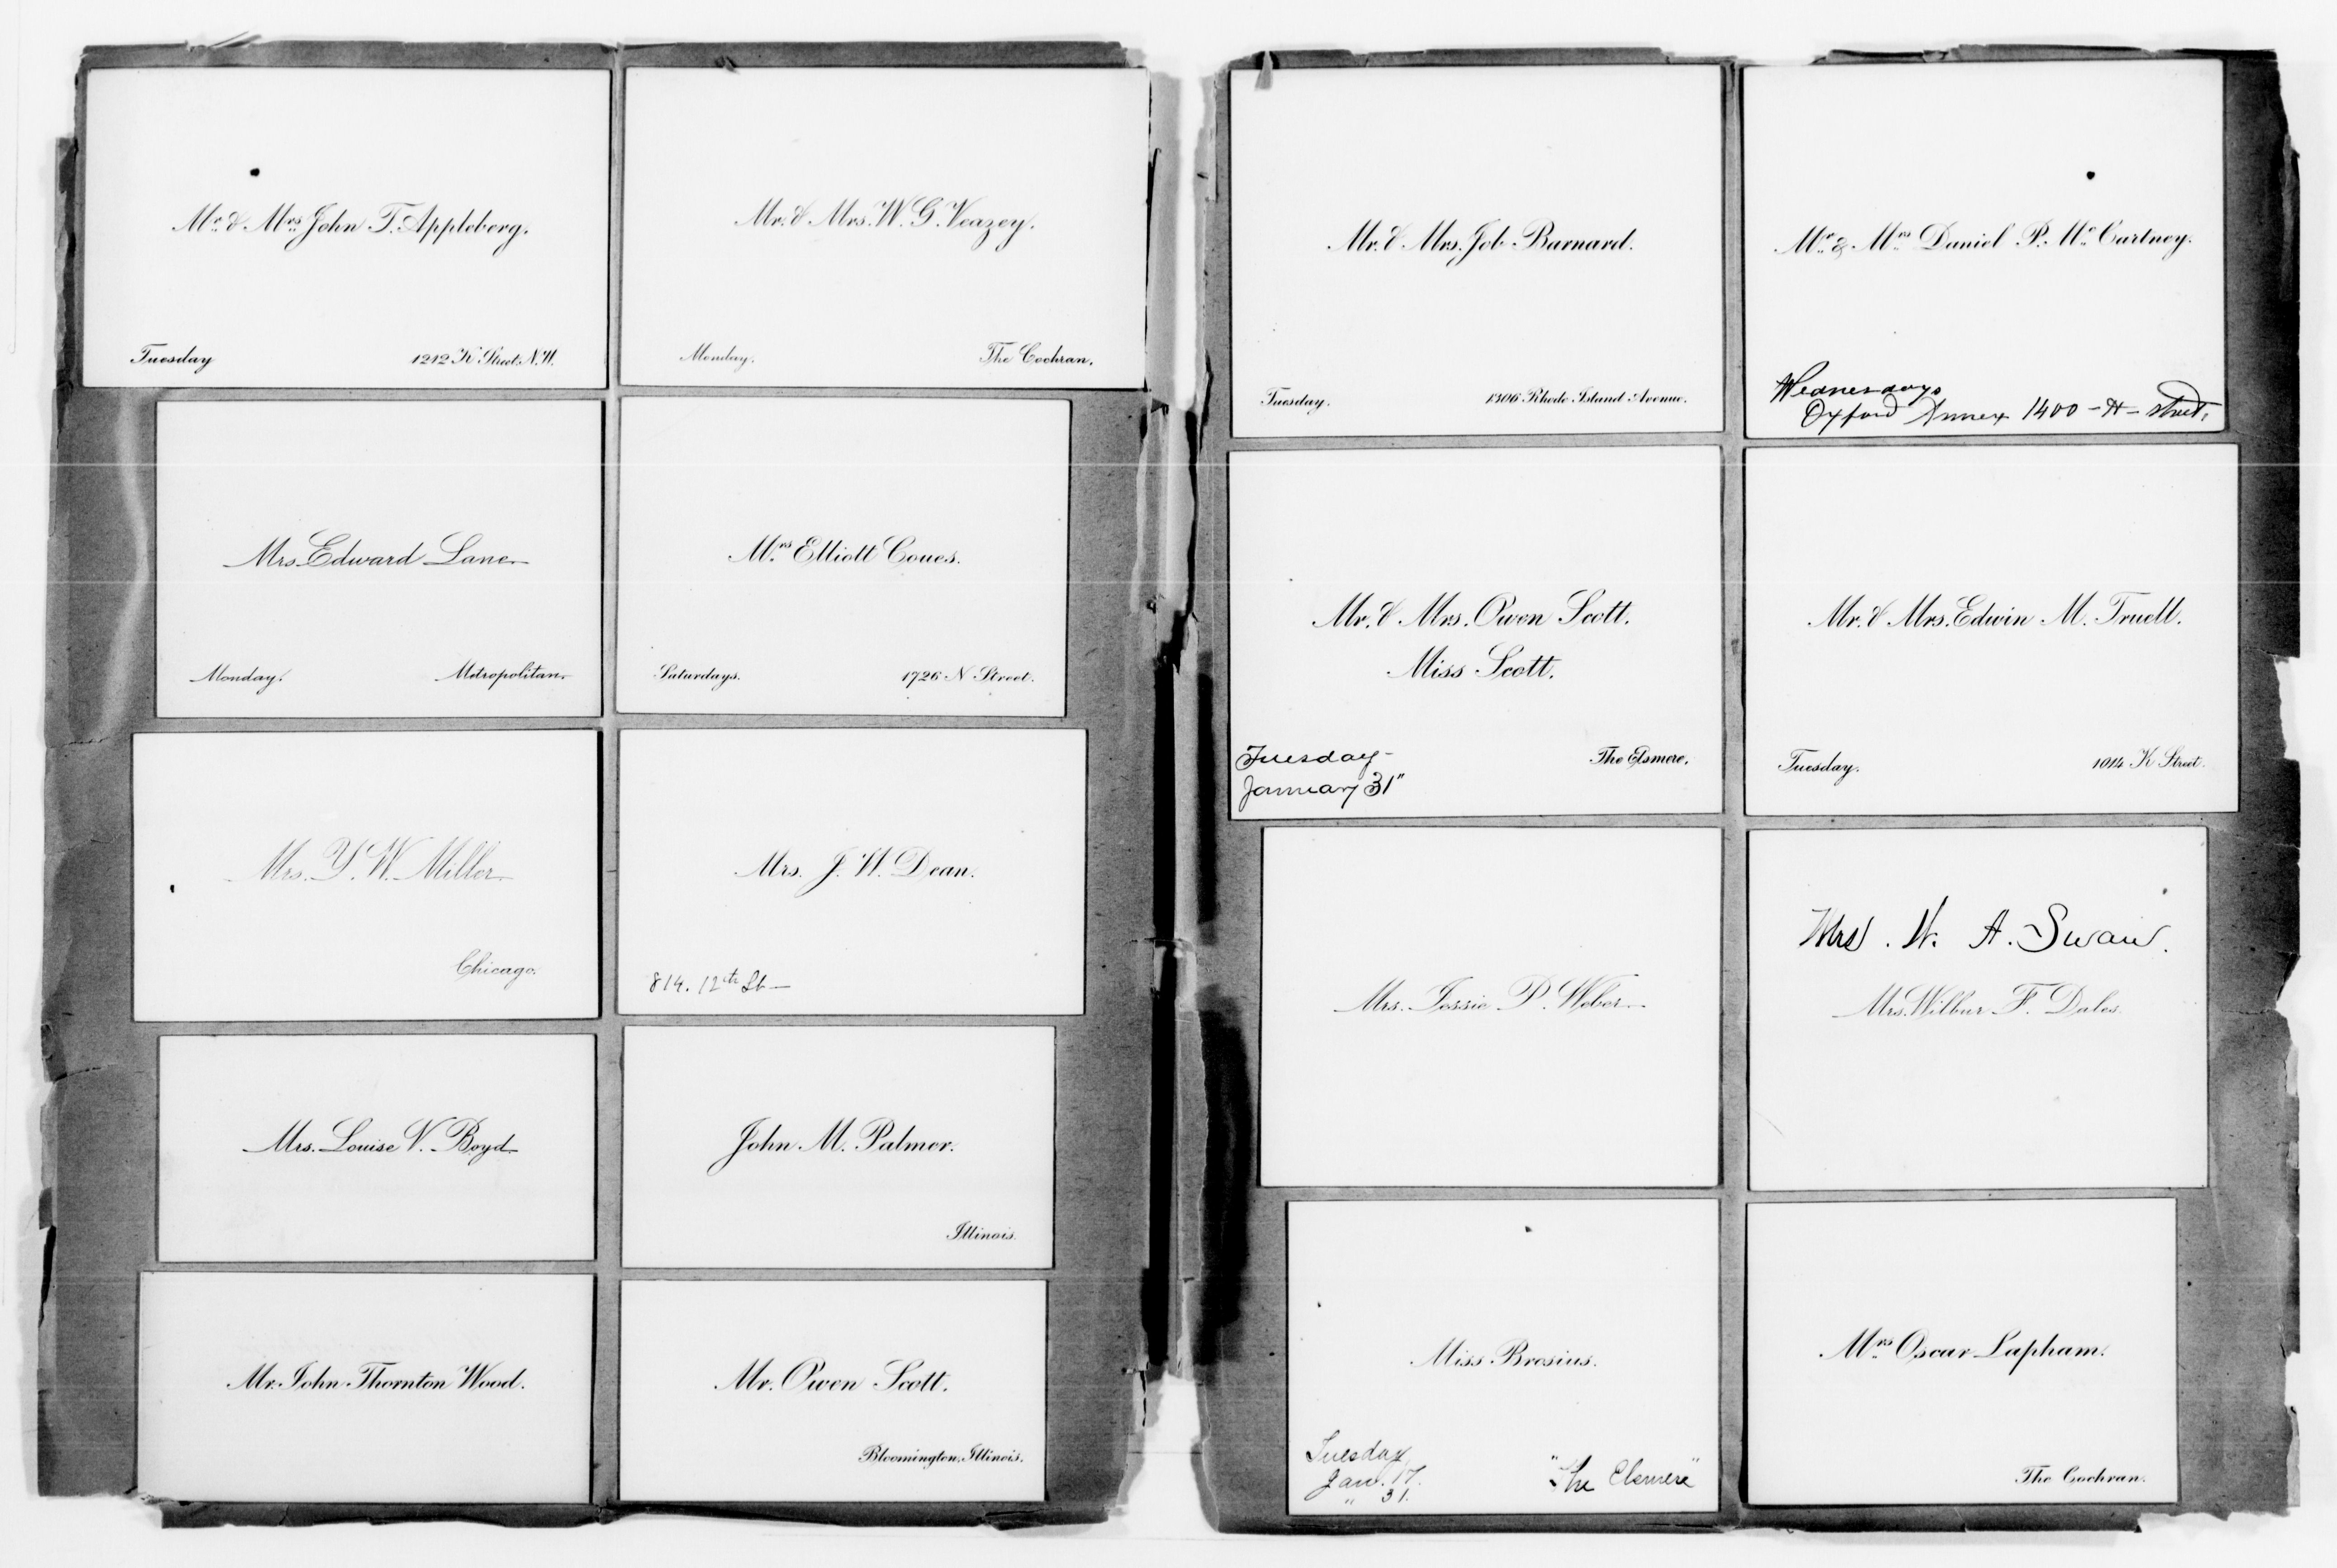 Mr. & Mrs. John T. Appleberg.
Tuesday
1212 K Street, N.W.
Mr. & Mrs. W. G. Veazey.
Monday.
The Cochran.
Mrs Edward Lane
Monday.
Metropolitan
Mrs. Elliott Coues.
Saturdays.
1726 N Street.
Mrs. Y. W. Miller
Chicago.
Mrs. J. W. Dean.
814. 12th St -
Mrs. Louise V. Boyd
John M. Palmer.
Illinois.
Mr. John Thornton Wood.
Mr. Owen Scott.
Bloomington, Illinois.
Mr. & Mrs. Job Barnard.
Tuesday.
1306 Rhode Island Avenue.
Mr. & Mrs. Daniel P. McCartney.
Wednesdays
Oxford Annex 1400 - H - street.
Mr. & Mrs. Owen Scott.
Miss Scott.
Tuesday -
January 31"
The Elsmere.
Mr. & Mrs. Edwin M. Truell.
Tuesday.
1014 K Street.
Mrs. Jessie P. Weber
Mrs. W. A. Swan.
Mrs. Wilbur F. Dales.
Miss Brosius.
Tuesday
Jan. 17.
" 31.
"The Elsmere"
Mrs. Oscar Lapham.
The Cochran.